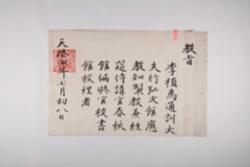 教旨
李植爲通訓大
夫行弘文館應
教知製教兼經
筵侍講官春秋
館編修官校書
館校理者
天啓 年七月初八日